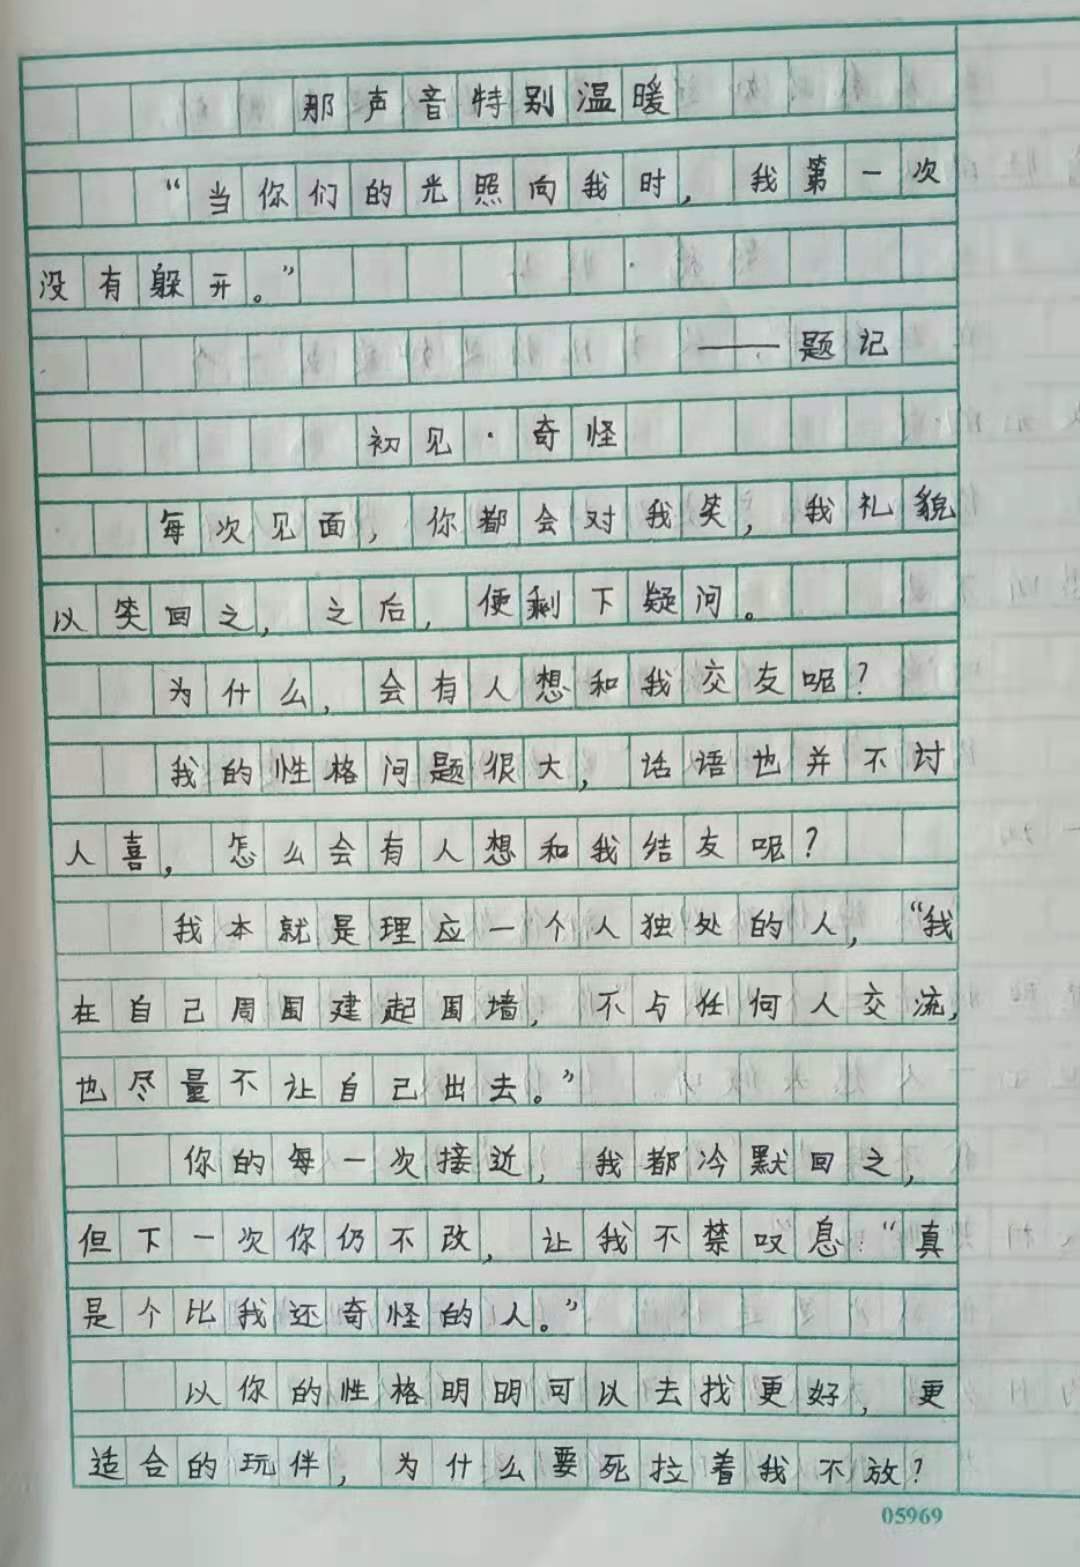 那声音特别温暖
“当你们的光照向我时，我第一次
没有躲开。”
——题记
初见·奇怪
每次见面，你都会对我笑，我礼貌
以笑回之，之后，便剩下疑问。
为什么，会有人想和我交友呢？
我的性格问题很大，话语也并不讨
人喜，怎么会有人想和我结友呢？
我本就是理应一个人独处的人，“我
在自己周围建起围墙，不与任何人交流，
也尽量不让自己出去。”
你的每一次接近，我都冷默回之，
但下一次你仍不改，让我不禁叹息：“真
是个比我还奇怪的人。”
以你的性格明明可以去找更好，更
适合的玩伴，为什么要死拉着我不放？
05969